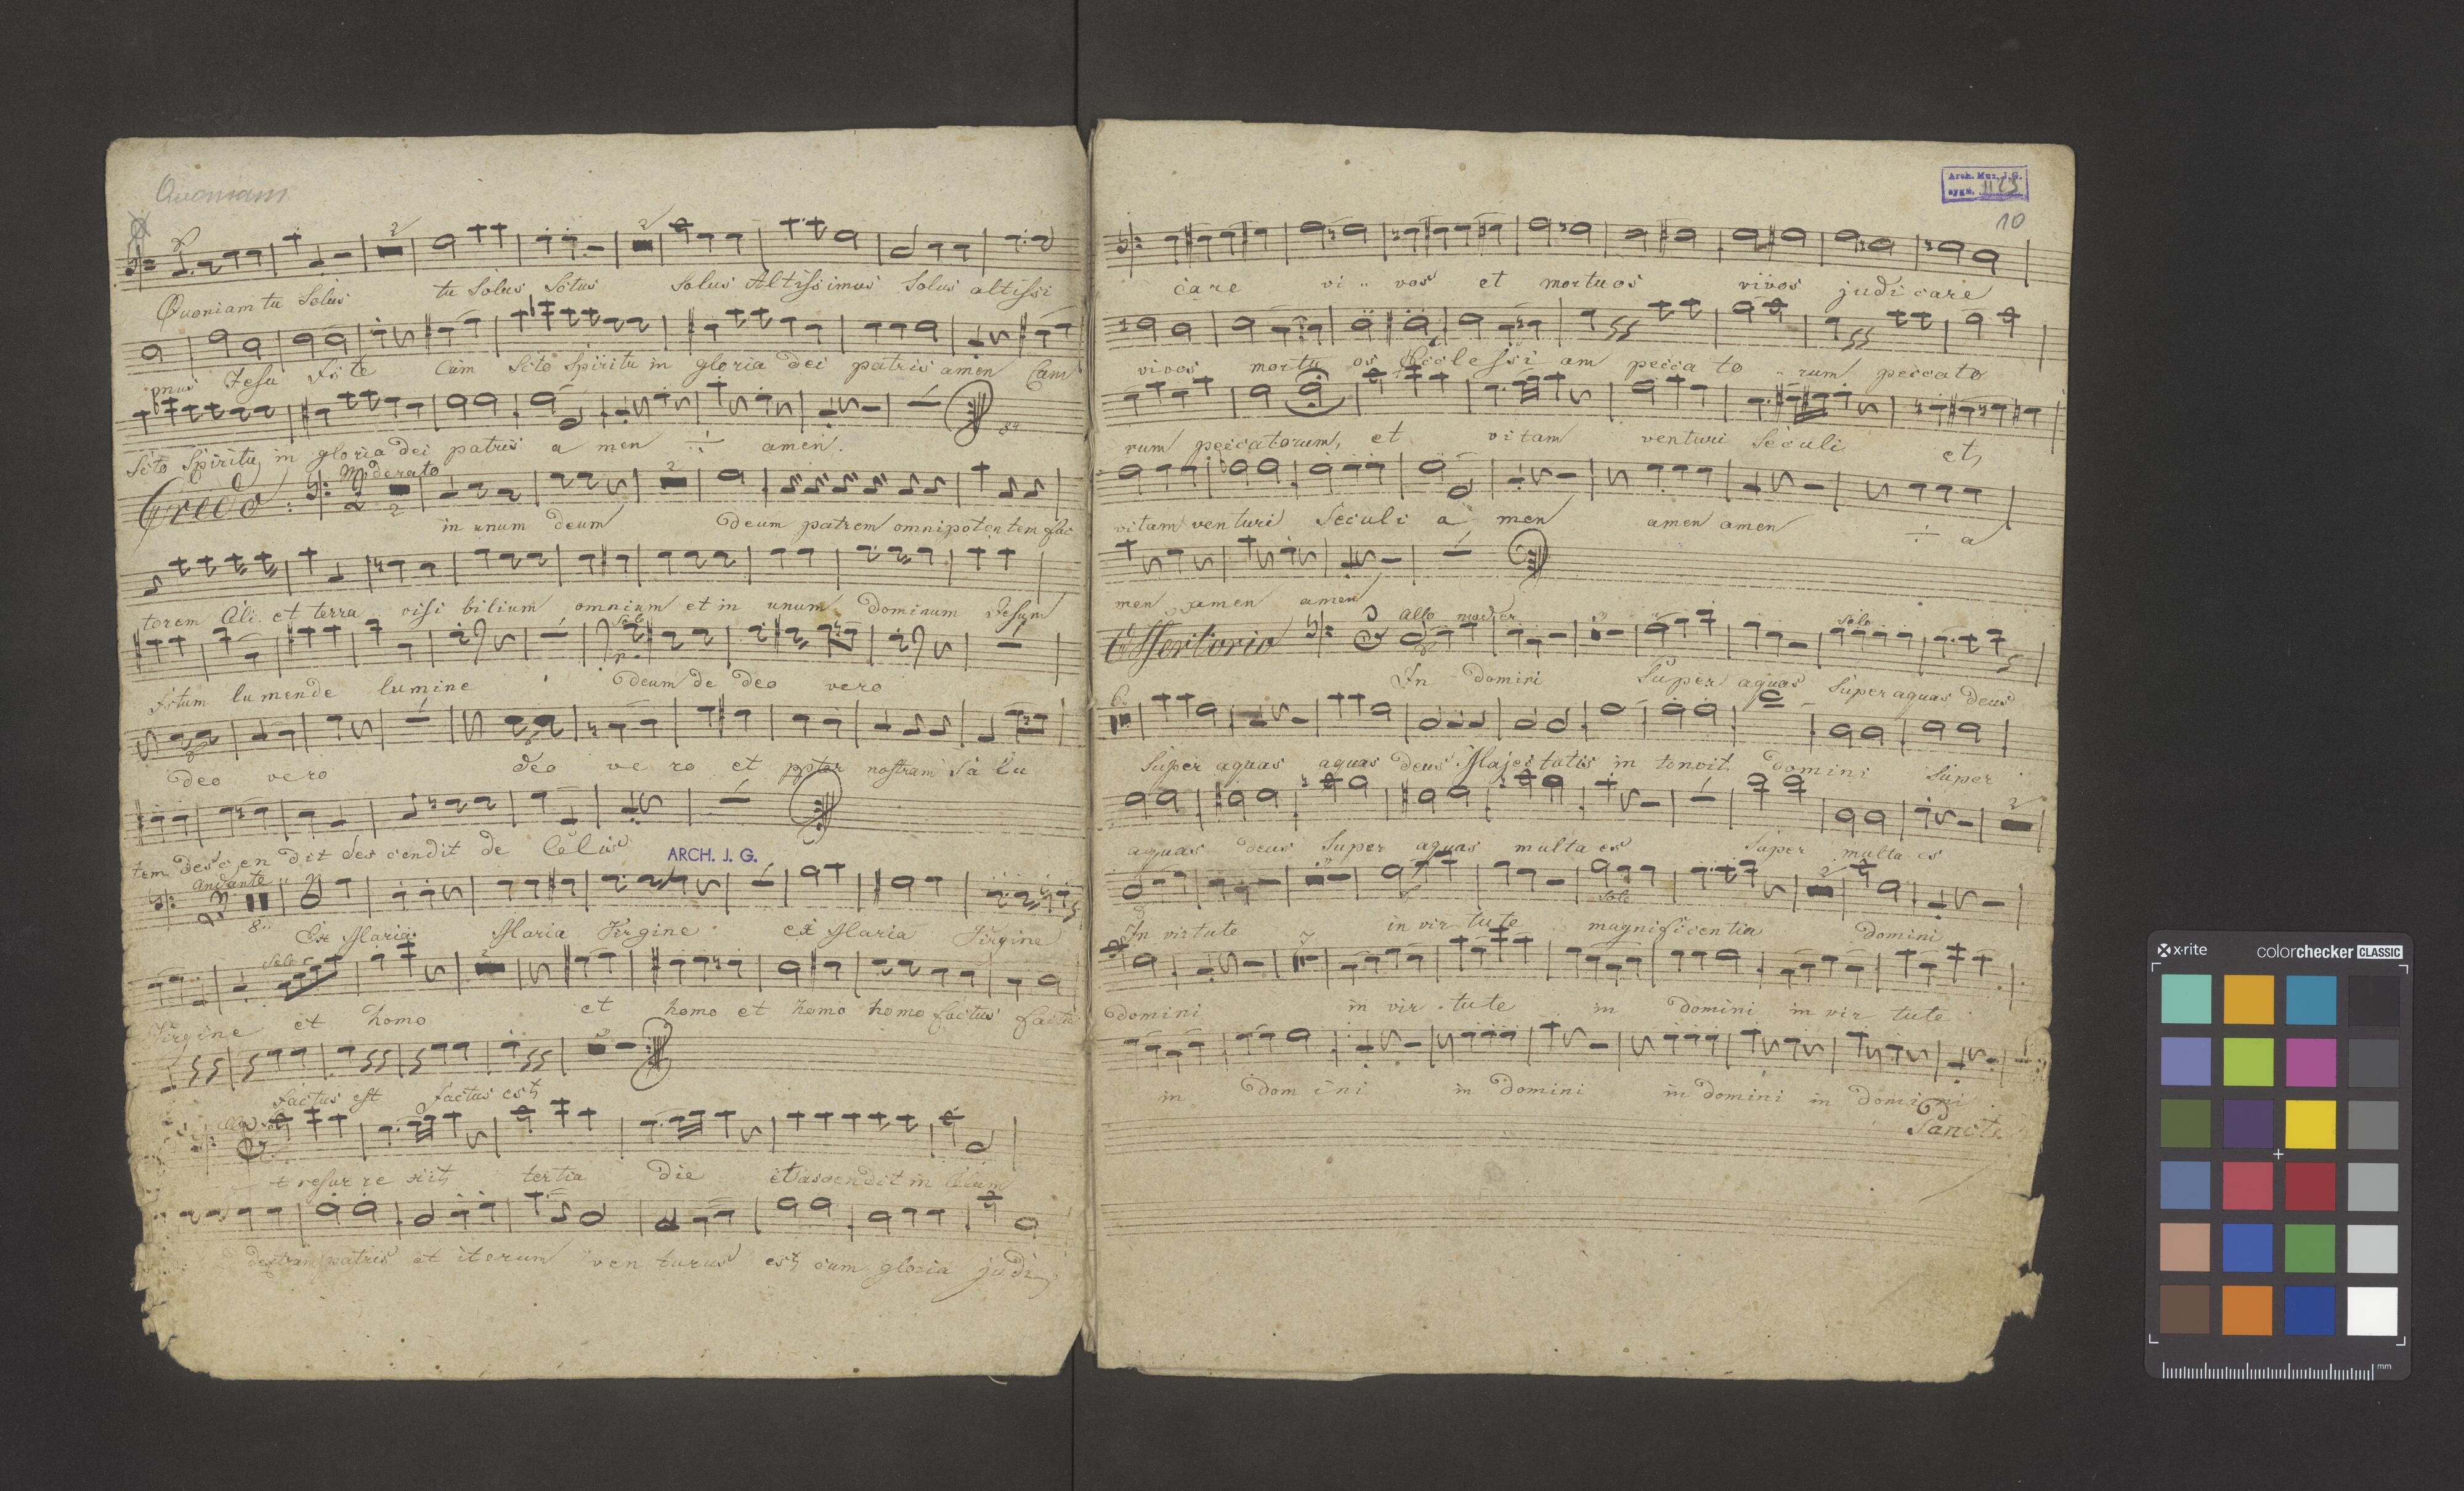 Quoniam
2 2
Quoniam tu Solus tu Solus Sctus Solus Altissimus Solus altissi
Jesu Xste Cum Scto Spiritu in gloria dei patris amen Cum
Scto Spiritu in gloria dei patris a men ·/· amen.
Credo: Moderato 2 2
in unum deum Deum patrem omnipotentem fac
torem Celi et terra visi bilium omnium et in unum dominum Jesum
Solo
Xstum lumen de lumine Deum de deo vero
deo vero deo ve ro et ppter nostram Sa lu
tem descen dit des cendit de Celis
ARCH. J. G.
Andante
8 Ex Maria Maria Virgine ex Maria Virgine
Solo 2
Virgine et homo et homo et homo homo factus factus
factus est factus est
resur re xit tertia die et ascendit in Celum
dextram patris et iterum ven turus est cum gloria judi
Arch. Muz. J.G.
sygn. II 23
10
care vi vos et mortuos vivos judicare
vivos mortu os Ecclessi am pecca to rum peccato
rum peccatorum, et vitam venturi Seculi et
vitam venturi Seculi a men amen amen ·/· a
men amen amen
Offertorio Allo moder Solo
In domini Super aquas Super aquas deus
6
Super aquas aquas deus Majestatis in tonvit domini Super
2
aquas deus Super aquas multa es Super multa es
2
In virtute in vir tute Solo magnificentia domini
7
domini in vir tute in domini in vir tute
in dom ini in domini in domini in domini
Sancti
x-rite colorchecker CLASSIC
mm